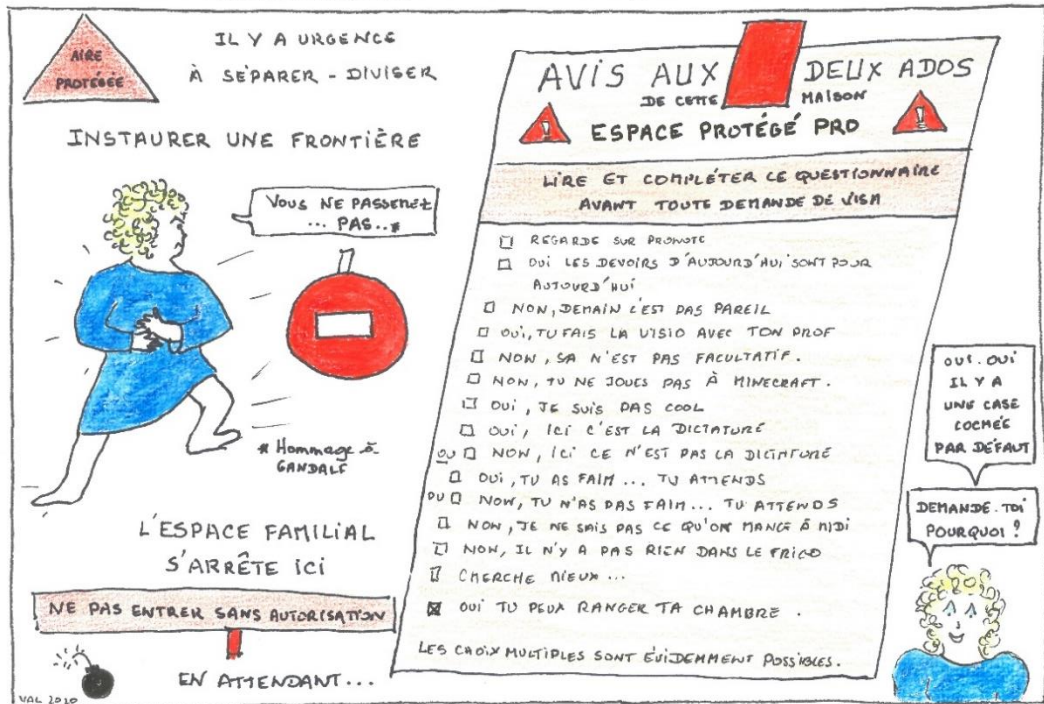 AIRE
PROTÉGÉE
IL Y A URGENCE
À SÉPARER - DIVISER
INSTAURER UNE FRONTIÈRE
VOUS NE PASSEREZ
... PAS..*
* Hommage à
GANDALF
L'ESPACE FAMILIAL
S'ARRÊTE ICI
NE PAS ENTRER SANS AUTORISATION
EN ATTENDANT...
VAL 2020
AVIS AUX DEUX ADOS
DE CETTE MAISON
ESPACE PROTÉGÉ PRO
LIRE ET COMPLÉTER LE QUESTIONNAIRE
AVANT TOUTE DEMANDE DE VISA
REGARDE SUR PRONOTE
OUI LES DEVOIRS D'AUJOURD'HUI SONT POUR
AUJOURD'HUI
NON, DEMAIN C'EST PAS PAREIL
OUI, TU FAIS LA VISIO AVEC TON PROF
NON, SA N'EST PAS FACULTATIF.
NON, TU NE JOUES PAS À MINECRAFT.
OUI, JE SUIS PAS COOL
OUI, ICI C'EST LA DICTATURE
OU NON, ICI CE N'EST PAS LA DICTATURE
OUI, TU AS FAIM... TU ATTENDS
OU NON, TU N'AS PAS FAIM... TU ATTENDS
NON, JE NE SAIS PAS CE QU'ON MANGE À MIDI
NON, IL N'Y A PAS RIEN DANS LE FRIGO
CHERCHE MIEUX...
OUI TU PEUX RANGER TA CHAMBRE.
LES CHOIX MULTIPLES SONT ÉVIDEMMENT POSSIBLES.
OUI. OUI
IL Y A
UNE CASE
COCHÉE
PAR DÉFAUT
DEMANDE-TOI
POURQUOI?